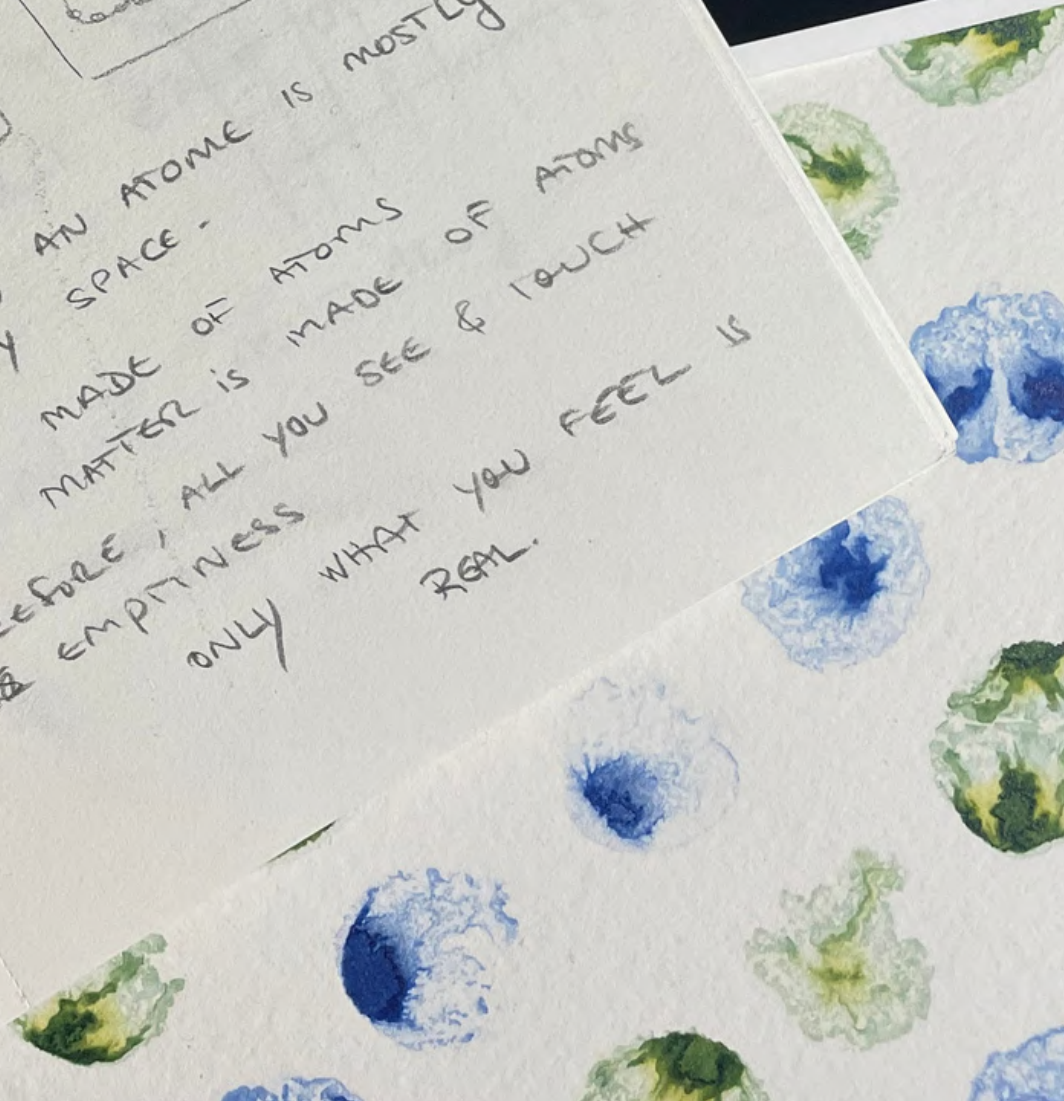 AN ATOME IS MOSTLY
SPACE.
MADE OF ATOMS
MATTER is MADE OF ATOMS
EEFORE, ALL YOU SEE & TOUCH
EMPTINESS
ONLY WHAT YOU FEEL IS
REAL.